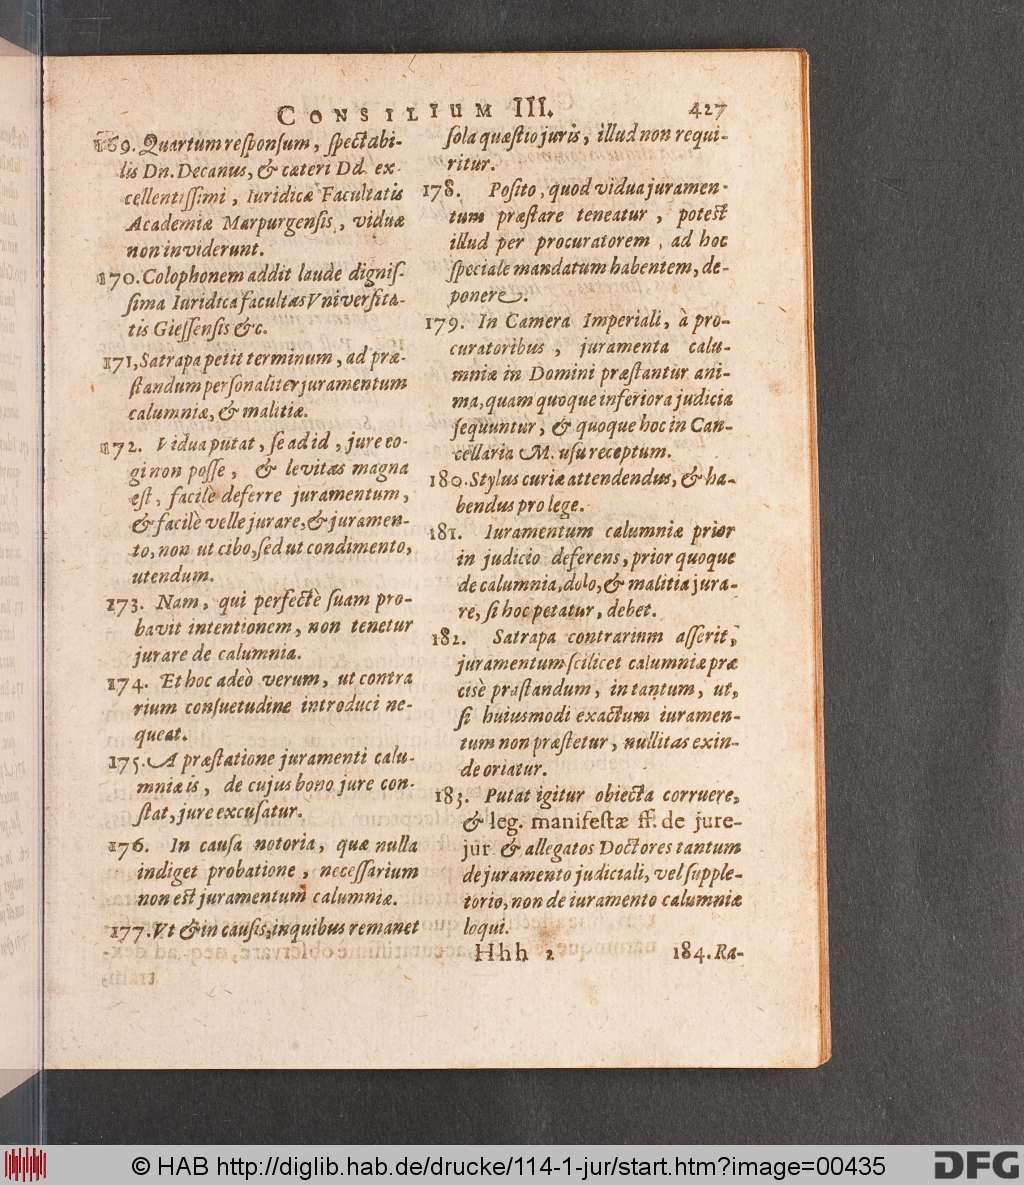 CONSILIUM III. 427
169. Quartum responsum, spectabi-
lis Dn. Decanus, & cæteri Dd. ex-
cellentissimi, Iuridicæ Facultatis
Academiæ Marpurgensis, viduæ
non inviderunt.
170. Colophonem addit laude dignis-
sima Iuridica facultas Vniversita-
tis Giessensis &c.
171, Satrapa petit terminum, ad præ-
standum personaliter juramentum
calumniæ, & malitiæ.
172. Vidua putat, se ad id, jure co-
gi non posse, & levitas magna
est, facilè deferre juramentum,
& facilè velle jurare, & juramen-
to, non ut cibo, sed ut condimento,
utendum.
173. Nam, qui perfectè suam pro-
bavit intentionem, non tenetur
jurare de calumnia.
174. Et hoc adeò verum, ut contra
rium consuetudine introduci ne-
queat.
175. A præstatione juramenti calu-
mniæ is, de cujus bono jure con-
stat, jure excusatur.
176. In causa notoria, quæ nulla
indiget probatione, necessarium
non est juramentum calumniæ.
177. Vt & in causis, in quibus remanet
sola quæstio juris, illud non requi-
ritur.
178. Posito, quod vidua juramen-
tum præstare teneatur, potest
illud per procuratorem, ad hoc
speciale mandatum habentem, de-
ponere.
179. In Camera Imperiali, à pro-
curatoribus, juramenta calu-
mniæ in Domini præstantur ani-
ma, quam quoque inferiora judicia
sequuntur, & quoque hoc in Can-
cellaria M. usu receptum.
180. Stylus curiæ attendendus, & ha-
bendus pro lege.
181. Iuramentum calumniæ prior
in judicio deferens, prior quoque
de calumnia, dolo, & malitia jura-
re, si hoc petatur, debet.
182. Satrapa contrarium asserit,
juramentum scilicet calumniæ præ
cisè præstandum, in tantum, ut,
si huiusmodi exactum iuramen-
tum non præstetur, nullitas exin-
de oriatur.
183. Putat igitur obiecta corruere,
& leg. manifestæ ff. de jure-
jur & allegatos Doctores tantum
de juramento judiciali, vel supple-
torio, non de iuramento calumniæ
loqui.
Hhh 2 184. Ra-
© HAB http://diglib.hab.de/drucke/114-1-jur/start.htm?image=00435 DFG